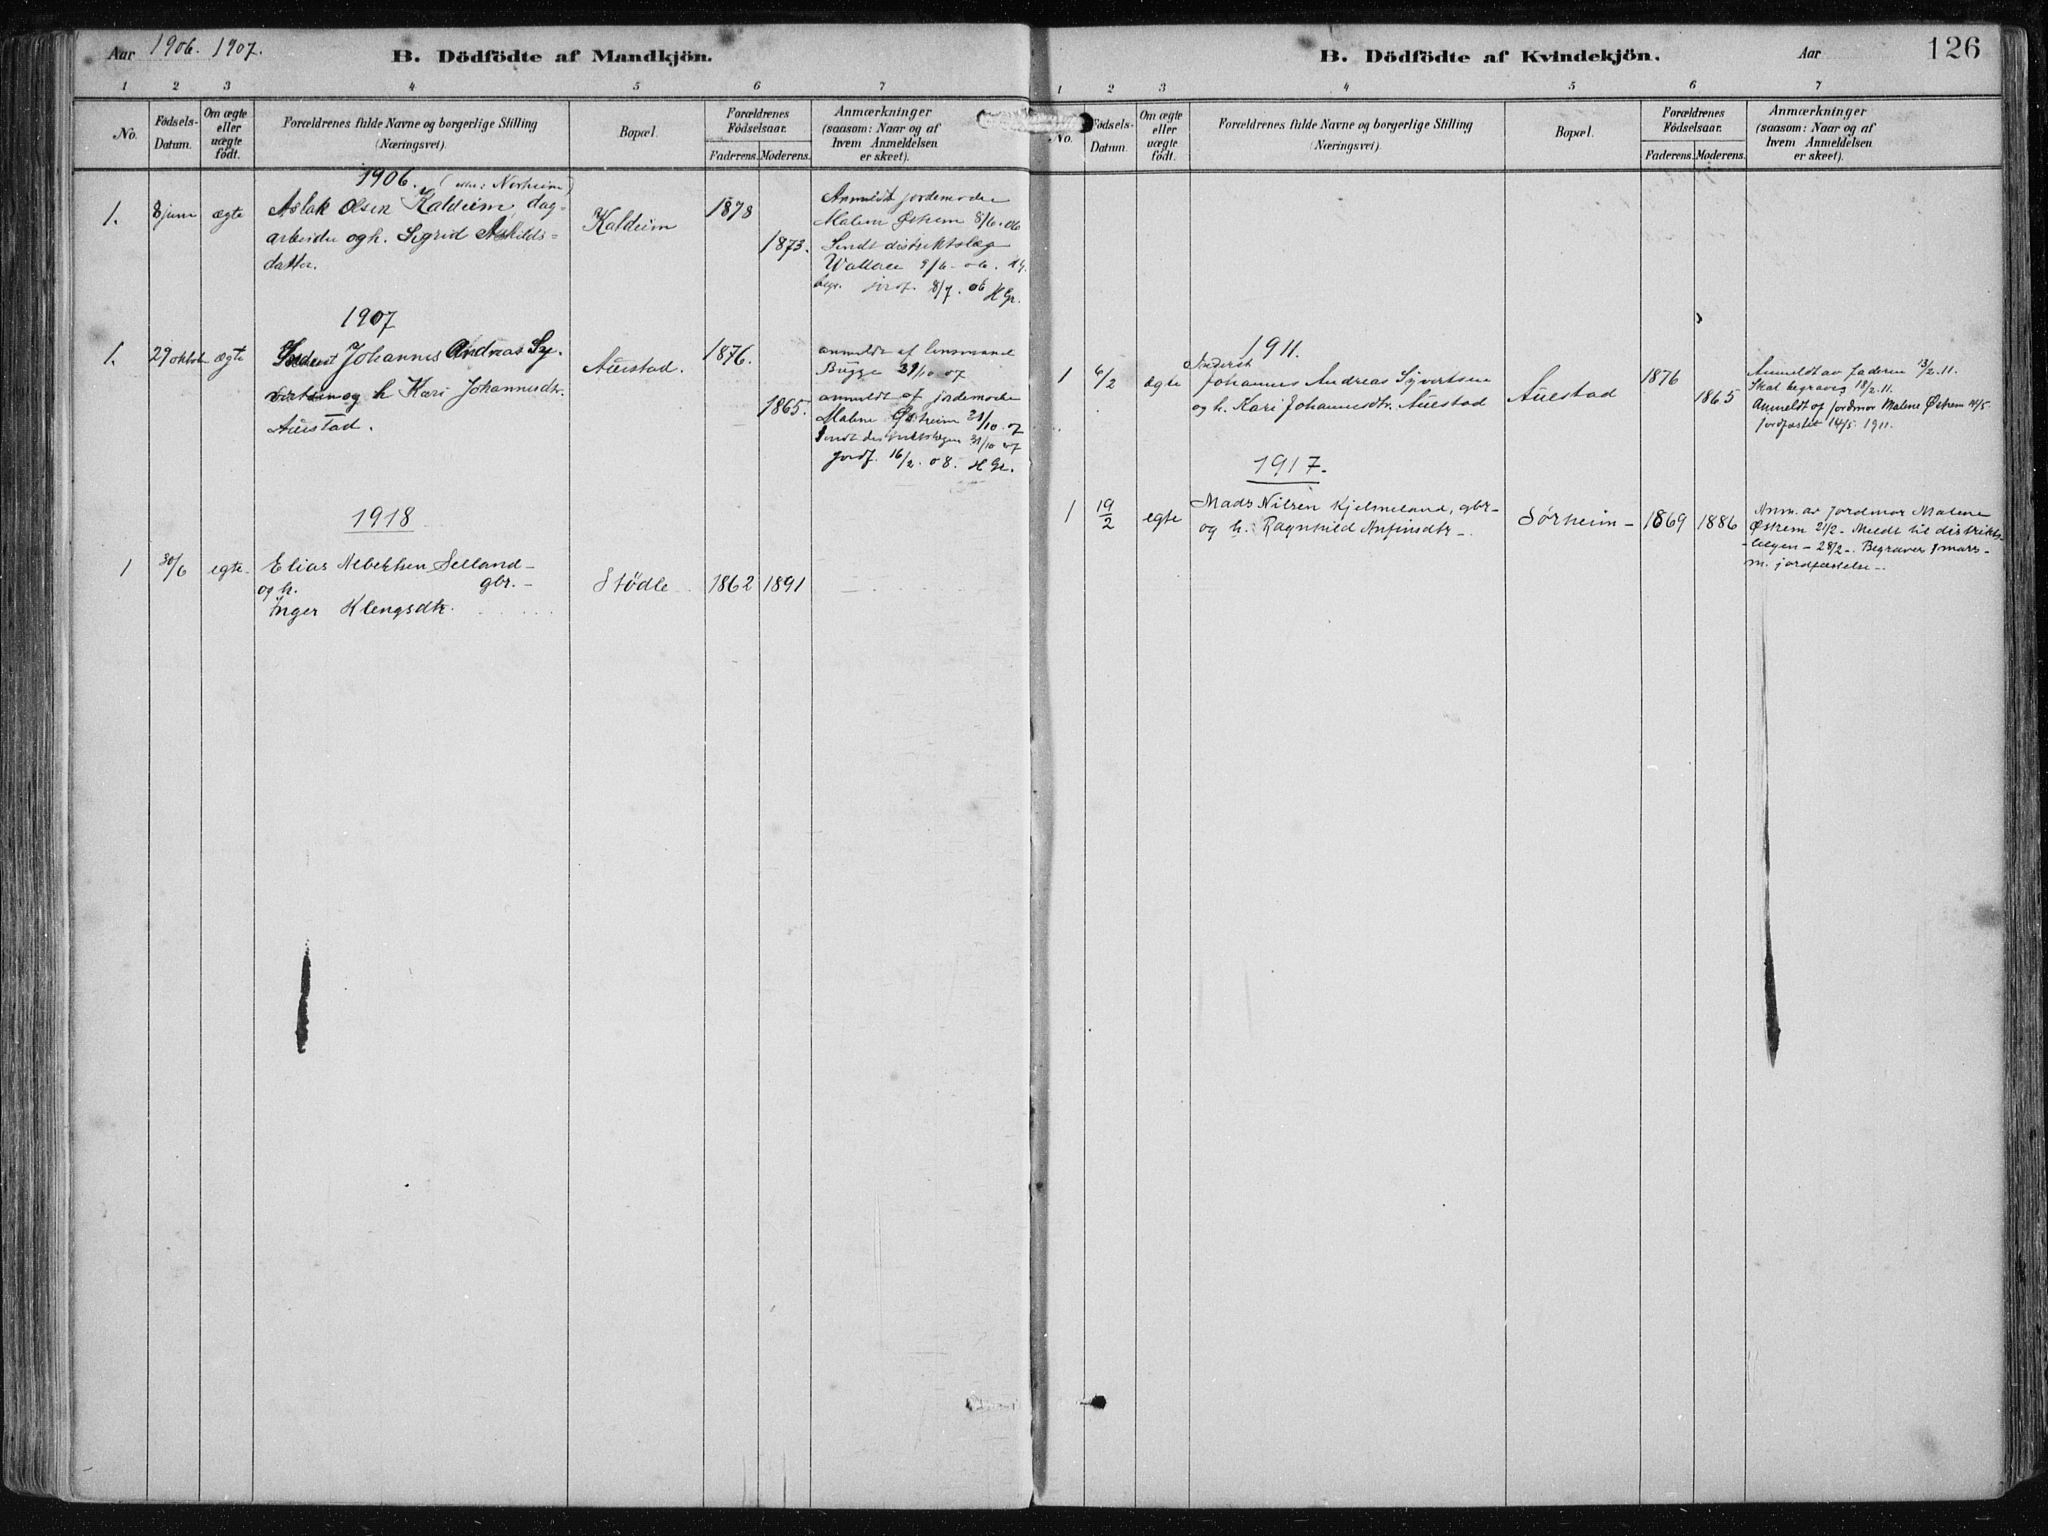 Aar 1906. 1907.
B. Dödfödte af Mandkjön.
1 2 3 4 5 6 7
No.
Födsels-
Datum.
Om ægte
eller
uægte
födt.
Forældrenes fulde Navne og borgerlige Stilling
(Næringsvei).
Bopæl.
Forældrenes
Födselsaar.
Faderens. Moderens.
Anmærkninger
(saasom: Naar og af
hvem Anmeldelsen
er skeet).
1906. Norheim)
1. 8 juni ægte Aslak Olsen Kaldeim, dag-
arbeider og h. Sigrid Askilds-
datter.
Kaldeim
1878
1873.
Anmeldt jordemoder
Malene Østrem 8/6. 06
Sendt distriktslæg
Wallace 9/6. 06.
jordf. 8/7. 06 H Gr.
1907
1. 29 oktob ægte Inderst Johannes Andreas Sy-
vertsen og h Kari Johannesdtr.
Auestad.
Auestad.
1876.
1865.
anmeldt af lensmand
Bugge 31/10 07
anmeldt af jordemoder
Malene Østreim 31/10. 07
Sendt distriktslægen 31/10 07
jordf. 16/2. 08. H Gr.
1918
1 30/6 egte. Elias Albertsen Selland-
og h. gbr. -
Inger Klengsdtr.
Stödle
1862 1891
B. Dödfödte af Kvindekjön.
Aar
126
1 2 3 4 5 6 7
No.
Födsels-
Datum.
Om ægte
eller
uægte
födt.
Forældrenes fulde Navne og borgerlige Stilling
(Næringsvei).
Bopæl.
Forældrenes
Födselsaar.
Faderens. Moderens.
Anmærkninger
(saasom: Naar og af
hvem Anmeldelsen
er skeet).
1911.
1 6/2 ægte Inderst
Johannes Andreas Syvertsen
og h. Kari Johannesdtr. Auestad
Auestad
1876
1865
Anmeldt av faderen 13/2. 11.
Skal begraves 18/2. 11.
Anmeldt af jordmor Malene Østrem 14/5.
Jordfæstet 14/5 1911.
1917.
1 19/2 egte Mads Nilsen Kjelmeland, gbr-
og h. Ragnhild Anfinsdtr -.
Sørheim -
1869 1886
Anm. av jordmor Malene
Østrem 21/2 - Meldt til distrikts-
-lægen - 28/2 -. Begravet 9 mars -
m. jordfæstelse -.